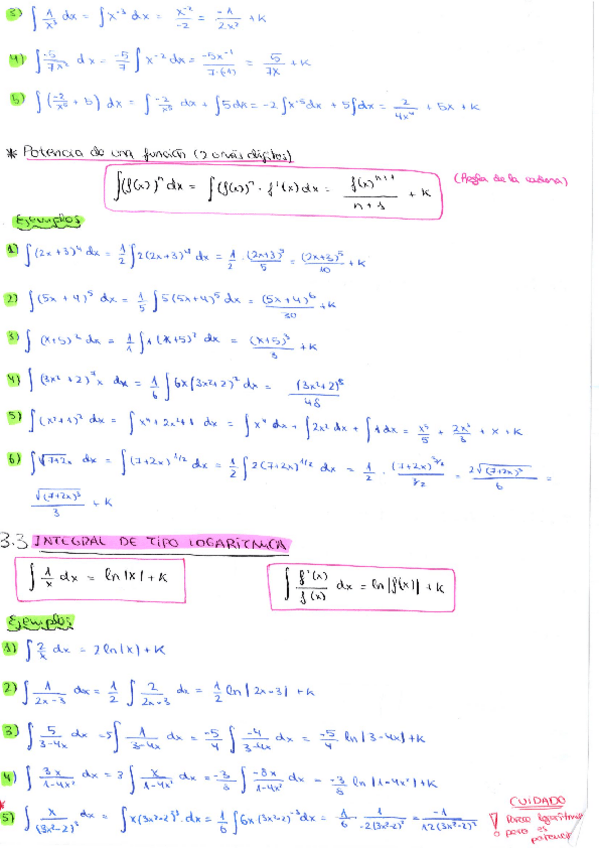 3) ∫ 1/x³ dx = ∫ x⁻³ dx = x⁻²/-2 = -1/2x² + K
4) ∫ -5/7x² dx = -5/7 ∫ x⁻² dx = -5x⁻¹/7·(-1) = 5/7x + K
5) ∫ (-2/x⁵ + 5) dx = ∫ -2/x⁵ dx + ∫ 5dx = -2 ∫ x⁻⁵dx + 5∫dx = 2/4x⁴ + 5x + K
* Potencia de una función (2 o más dígitos)
∫ (f(x))ⁿ dx = ∫ (f(x))ⁿ · f'(x) dx = f(x)ⁿ⁺¹/n+1 + K (Regla de la cadena)
Ejemplos
1) ∫ (2x+3)⁴ dx = 1/2 ∫ 2(2x+3)⁴ dx = 1/2 · (2x+3)⁵/5 = (2x+3)⁵/10 + K
2) ∫ (5x+4)⁵ dx = 1/5 ∫ 5(5x+4)⁵ dx = (5x+4)⁶/30 + K
3) ∫ (x+5)² dx = 1/1 ∫ 1(x+5)² dx = (x+5)³/3 + K
4) ∫ (3x²+2)⁷x dx = 1/6 ∫ 6x(3x²+2)⁷ dx = (3x²+2)⁸/48
5) ∫ (x²+1)² dx = ∫ x⁴+2x²+1 dx = ∫ x⁴ dx + ∫ 2x² dx + ∫ 1 dx = x⁵/5 + 2x³/3 + x + K
6) ∫ √7+2x dx = ∫ (7+2x)^1/2 dx = 1/2 ∫ 2(7+2x)^1/2 dx = 1/2 · (7+2x)^3/2 / 3/2 = 2√(7+2x)³/6 =
√(7+2x)³/3 + K
3.3 INTEGRAL DE TIPO LOGARÍTMICA
∫ 1/x dx = ln|x| + K ∫ f'(x)/f(x) dx = ln|f(x)| + K
Ejemplos
1) ∫ 2/x dx = 2ln|x| + K
2) ∫ 1/2x-3 dx = 1/2 ∫ 2/2x-3 dx = 1/2 ln|2x-3| + K
3) ∫ 5/3-4x dx = 5∫ 1/3-4x dx = -5/4 ∫ -4/3-4x dx = -5/4 ln|3-4x| + K
4) ∫ 3x/1-4x² dx = 3 ∫ x/1-4x² dx = -3/8 ∫ -8x/1-4x² dx = -3/8 ln|1-4x²| + K
* 5) ∫ x/(3x²-2)³ dx = ∫ x(3x²-2)⁻³ dx = 1/6 ∫ 6x(3x²-2)⁻³dx = 1/6 · 1/-2(3x²-2)² = -1/12(3x²-2)²
CUIDADO
Parece logarítmica
pero es
potencia